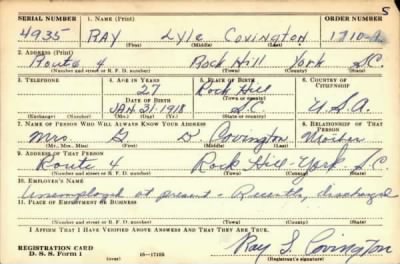 5
SERIAL NUMBER 1. NAME (Print) ORDER NUMBER
4935 RAY Lyle Covington 1710-A
(First) (Middle) (Last)
2. ADDRESS (Print)
Route 4 Rock Hill York S.C.
(Number and street or R. F. D. number) (Town) (County) (State)
3. TELEPHONE 4. AGE IN YEARS 5. PLACE OF BIRTH 6. COUNTRY OF CITIZENSHIP
27 Rock Hill
DATE OF BIRTH (Town or county)
JAN. 31. 1918 S.C. U.S.A.
(Exchange) (Number) (Mo.) (Day) (Yr.) (State or country)
7. NAME OF PERSON WHO WILL ALWAYS KNOW YOUR ADDRESS 8. RELATIONSHIP OF THAT PERSON
Mrs. D Covington Mother
(Mr., Mrs., Miss) (First) (Middle) (Last)
9. ADDRESS OF THAT PERSON
Route 4 Rock Hill-York-S.C.
(Number and street or R. F. D. number) (Town) (County) (State)
10. EMPLOYER'S NAME
Unemployed at present - Recently discharged
11. PLACE OF EMPLOYMENT OR BUSINESS
(Number and street or R. F. D. number) (Town) (County) (State)
I AFFIRM THAT I HAVE VERIFIED ABOVE ANSWERS AND THAT THEY ARE TRUE.
REGISTRATION CARD
D. S. S. Form 1 16-17105 Ray L. Covington
(Registrant's signature)